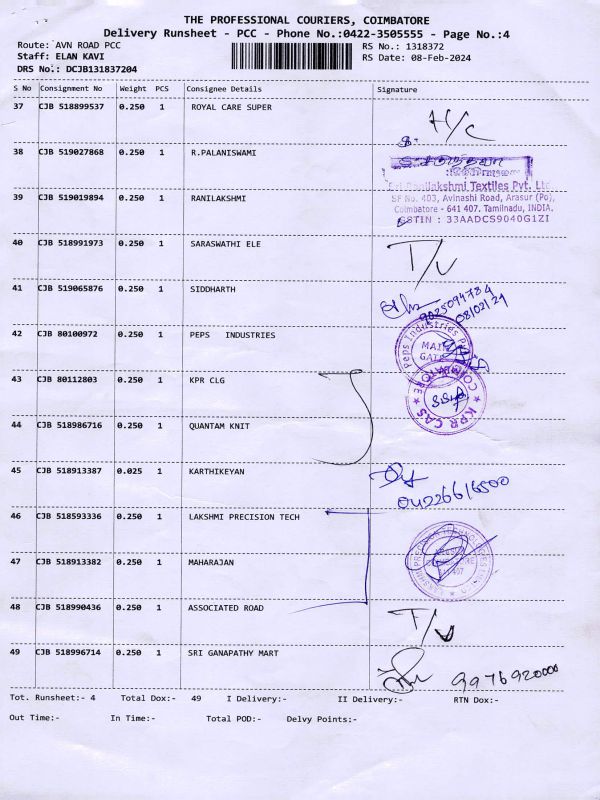 THE PROFESSIONAL COURIERS, COIMBATORE
Delivery Runsheet - PCC - Phone No.:0422-3505555 - Page No.:4
Route: AVN ROAD PCC
RS No.: 1318372
Staff: ELAN KAVI
RS Date: 08-Feb-2024
DRS No.: DCJB131837204
S No Consignment No Weight PCS Consignee Details Signature
37 CJB 518899537 0.250 1 ROYAL CARE SUPER H/C
38 CJB 519027868 0.250 1 R.PALANISWAMI
39 CJB 519019894 0.250 1 RANILAKSHMI
Ranilakshmi Textiles Pvt. Ltd
SF No. 403, Avinashi Road, Arasur (Po),
Coimbatore - 641 407. Tamilnadu, INDIA.
GSTIN : 33AADCS9040G1ZI
40 CJB 518991973 0.250 1 SARASWATHI ELE T/V
41 CJB 519065876 0.250 1 SIDDHARTH
9025094784
08/02/24
42 CJB 80100972 0.250 1 PEPS INDUSTRIES
Peps Industries
MAIN
GATE
43 CJB 80112803 0.250 1 KPR CLG
KPR CAS
44 CJB 518986716 0.250 1 QUANTAM KNIT
45 CJB 518913387 0.025 1 KARTHIKEYAN
04226616500
46 CJB 518593336 0.250 1 LAKSHMI PRECISION TECH
LAKSHMI PRECISION TECHNOLOGIES
47 CJB 518913382 0.250 1 MAHARAJAN
48 CJB 518990436 0.250 1 ASSOCIATED ROAD T/V
49 CJB 518996714 0.250 1 SRI GANAPATHY MART
9976920000
Tot. Runsheet:- 4 Total Dox:- 49 I Delivery:- II Delivery:- RTN Dox:-
Out Time:- In Time:- Total POD:- Delvy Points:-